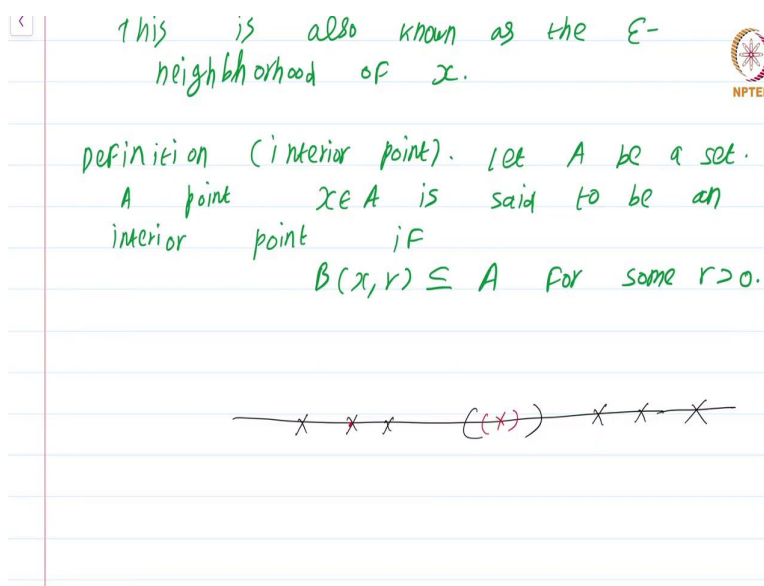 This is also known as the ε-
neighbhorhood of x.
NPTE
Definition (interior point). Let A be a set.
A point x∈A is said to be an
interior point if
B(x,r) ⊆ A for some r>0.
x x x ((x)) x x x